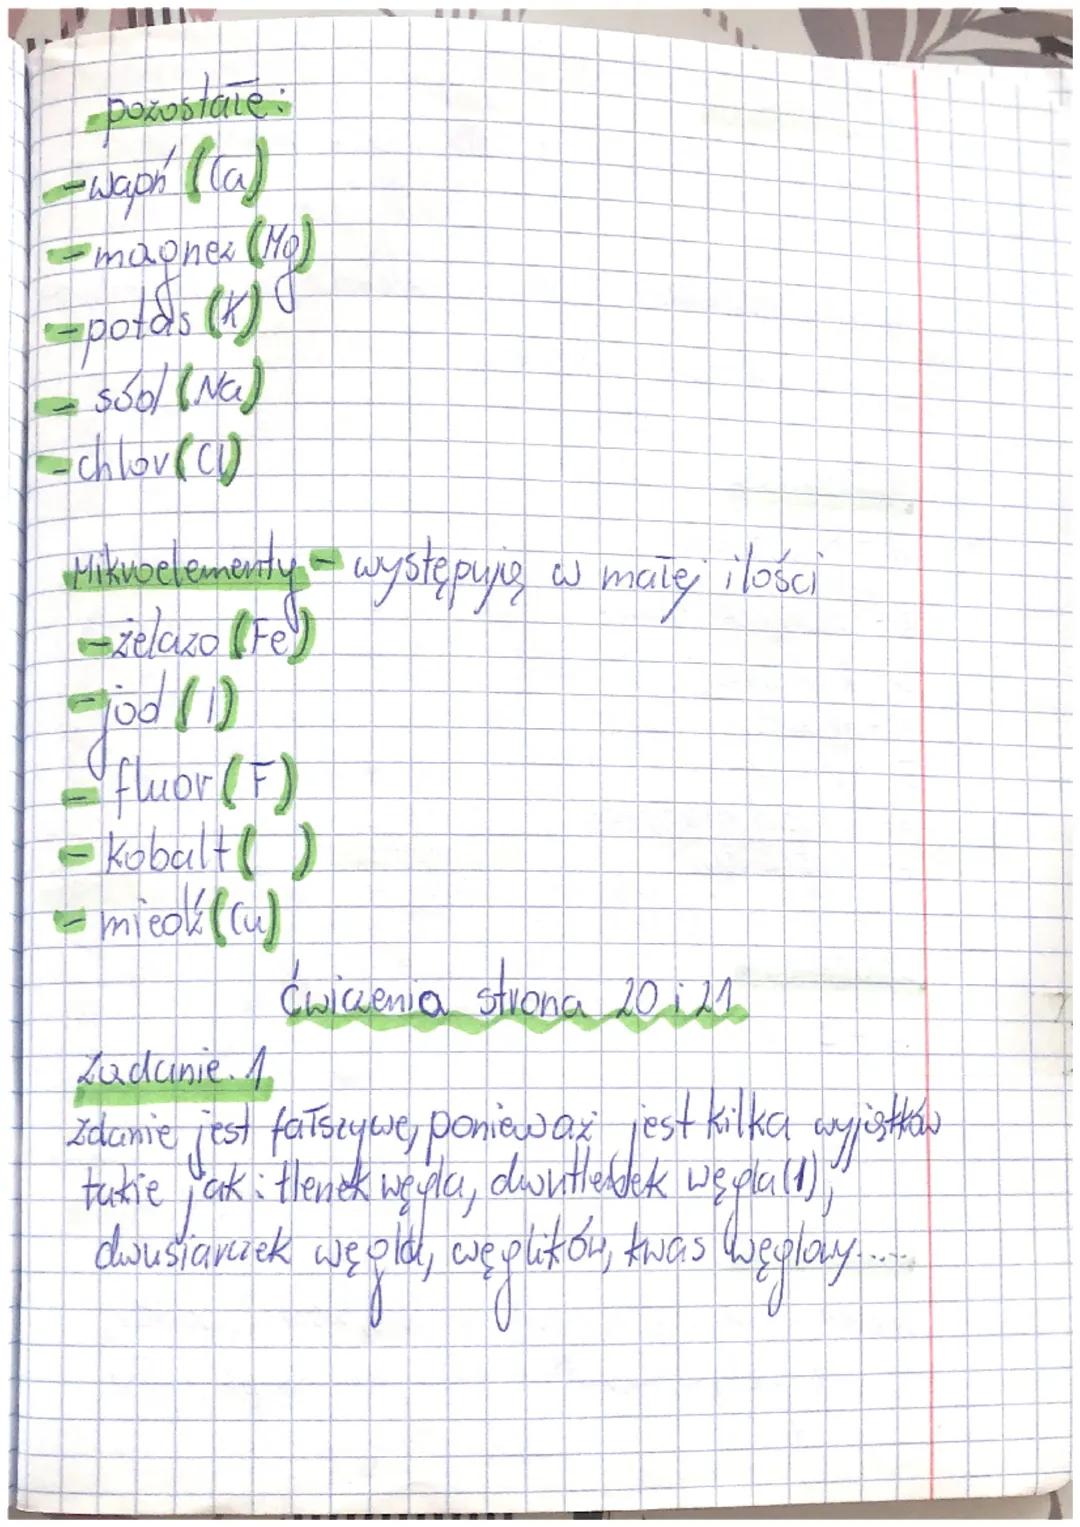 pozostałe:
- wapń (Ca)
- magnez (Mg)
- potas (K)
- sód (Na)
- chlor (Cl)
Mikroelementy - występują w małej ilości
- żelazo (Fe)
- jod (I)
- fluor (F)
- kobalt ( )
- miedź (Cu)
Ćwiczenia strona 20 i 21
Zadanie. 1
Zdanie jest fałszywe, ponieważ jest kilka wyjątków
takie jak: tlenek węgla, dwutlenek węgla (1),
dwusiarczek węgla, węglików, kwas węglowy.....